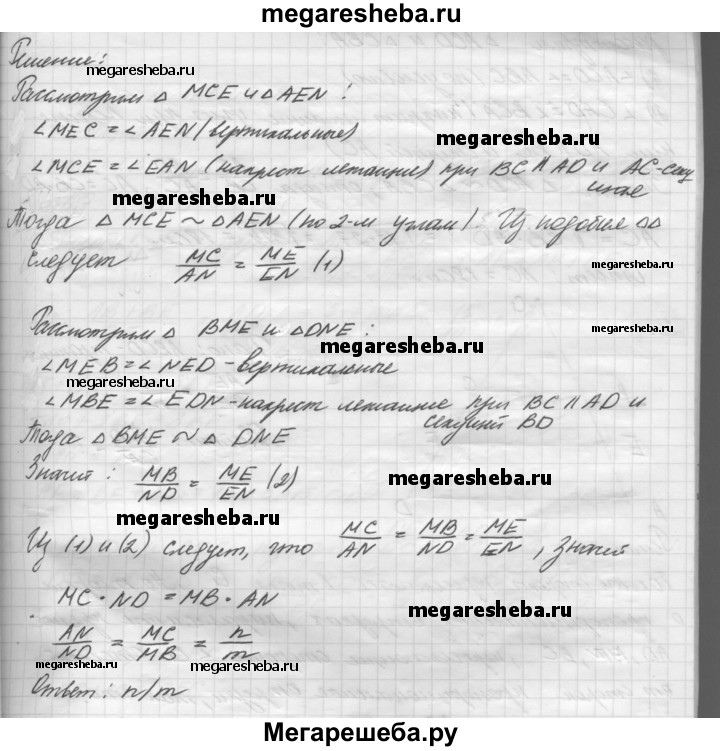 megaresheba.ru
Решение:
megaresheba.ru
Рассмотрим △ MCE и △ AEN:
∠MEC = ∠AEN (вертикальные)
megaresheba.ru
∠MCE = ∠EAN (накрест лежащие) при BC || AD и AC - секу
щая
megaresheba.ru
Тогда △ MCE ~ △ AEN (по 2-м углам). Из подобия △△
следует MC/AN = ME/EN (1)
megaresheba.ru
Рассмотрим △ BME и △ DNE:
megaresheba.ru
megaresheba.ru
∠MEB = ∠NED - вертикальные
megaresheba.ru
∠MBE = ∠EDN - накрест лежащие при BC || AD и
секущей BD
Тогда △ BME ~ △ DNE
Значит: MB/ND = ME/EN (2)
megaresheba.ru
megaresheba.ru
Из (1) и (2) следует, что MC/AN = MB/ND = ME/EN, значит
MC · ND = MB · AN
megaresheba.ru
AN/ND = MC/MB = n/m
megaresheba.ru
megaresheba.ru
Ответ: n/m
Мегарешеба.ру